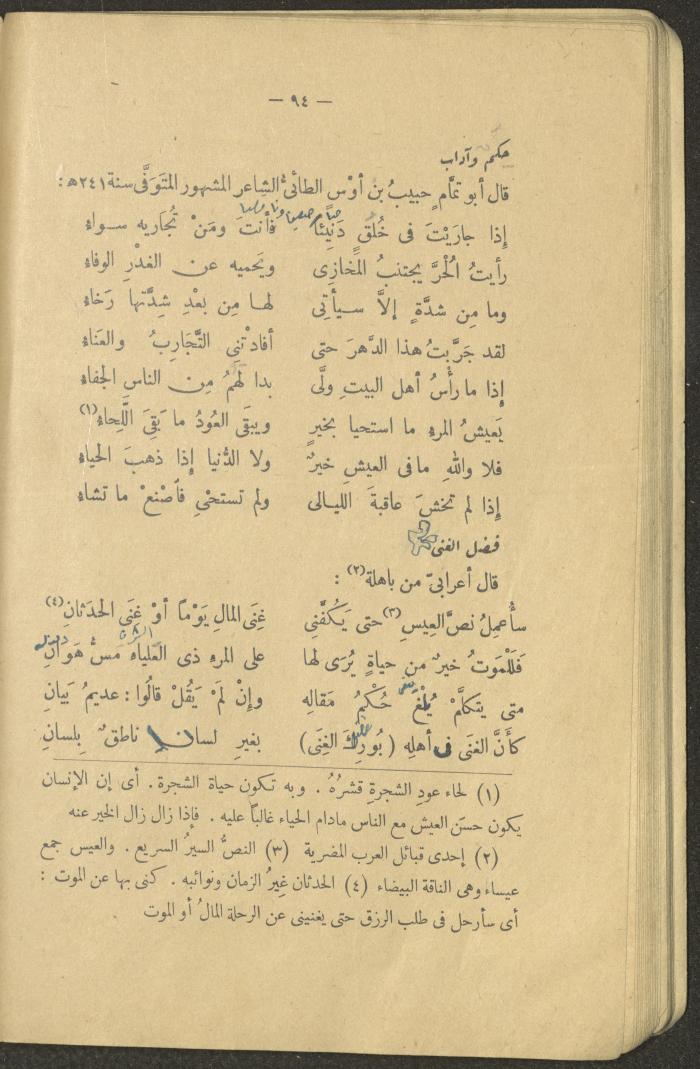 — ٩٤ —
حكم وآداب
قال أبو تمَّام حبيبُ بن أوْس الطائىُّ الشاعر المشهور المتوَفَّى سنة ٢٤١ هـ :
إذا جارَيْتَ فى خُلُقٍ دَنِيئًا فأنتَ ومَنْ تُجَاريه سـواء
رأيتُ الْحُرَّ يجتنبُ الْمَخازِى ويَحميه عن الغدْرِ الوفاء
وما مِن شدَّةٍ إلاَّ سـيأتِى لهـا مِن بعْدِ شِدَّتها رَخاء
لقد جَرَّبتُ هذا الدَّهرَ حتى أفادتْنى التَّجَارِبُ والعَناء
إذا ما رأْسُ أهل البيتِ ولَّى بدا لَهُمُ مِن الناس الجفاء
يَعيشُ المرء ما استحيا بخيرٍ ويبقَى العُودُ ما بَقِىَ اللِّحاء(١)
فلا واللهِ ما فى العيشِ خيرٌ ولا الدُّنيا إذا ذهبَ الحياء
إذا لم تخشَ عاقبةَ الليـالى ولم تستحْىِ فاُصْنعْ ما تشاء
فضل الغنى
قال أعرابىّ من باهلة(٢) :
سأُعمِلُ نصَّ العِيسِ(٣) حتى يَكُفَّنِى غِنَى المالِ يَوْماً أوْ غِنَى الحدَثانِ(٤)
فَلَلْمَوتُ خيرٌ من حياةٍ يُرَى لها على المرءِ ذى العَلياء مَسُّ هَوَانِ
متى يتكلَّمْ يُلْغَ حُكْمُ مَقالِه وإِنْ لَمْ يَقُلْ قالُوا : عديمُ بَيانِ
كأَنَّ الغنَى فى أهلِه (بُورِكَ الغِنَى) بغيرِ لسانٍ ناطقٌ بِلسانِ
(١) لحاء عودِ الشجرةِ قشرُهُ . وبه تكون حياة الشجرة . أى إن الإنسان
يكون حسَن العيش مع الناس مادام الحياء غالباً عليه . فإذا زال زال الخير عنه
(٢) إحدى قبائل العرب المضرية (٣) النصُّ السيرُ السريع . والعيس جمع
عيساء وهى الناقة البيضاء (٤) الحدثان غِيرُ الزمان ونوائبه . كنى بها عن الموت :
أى سأرحل فى طلب الرزق حتى يغنينى عن الرحلة المالُ أو الموت